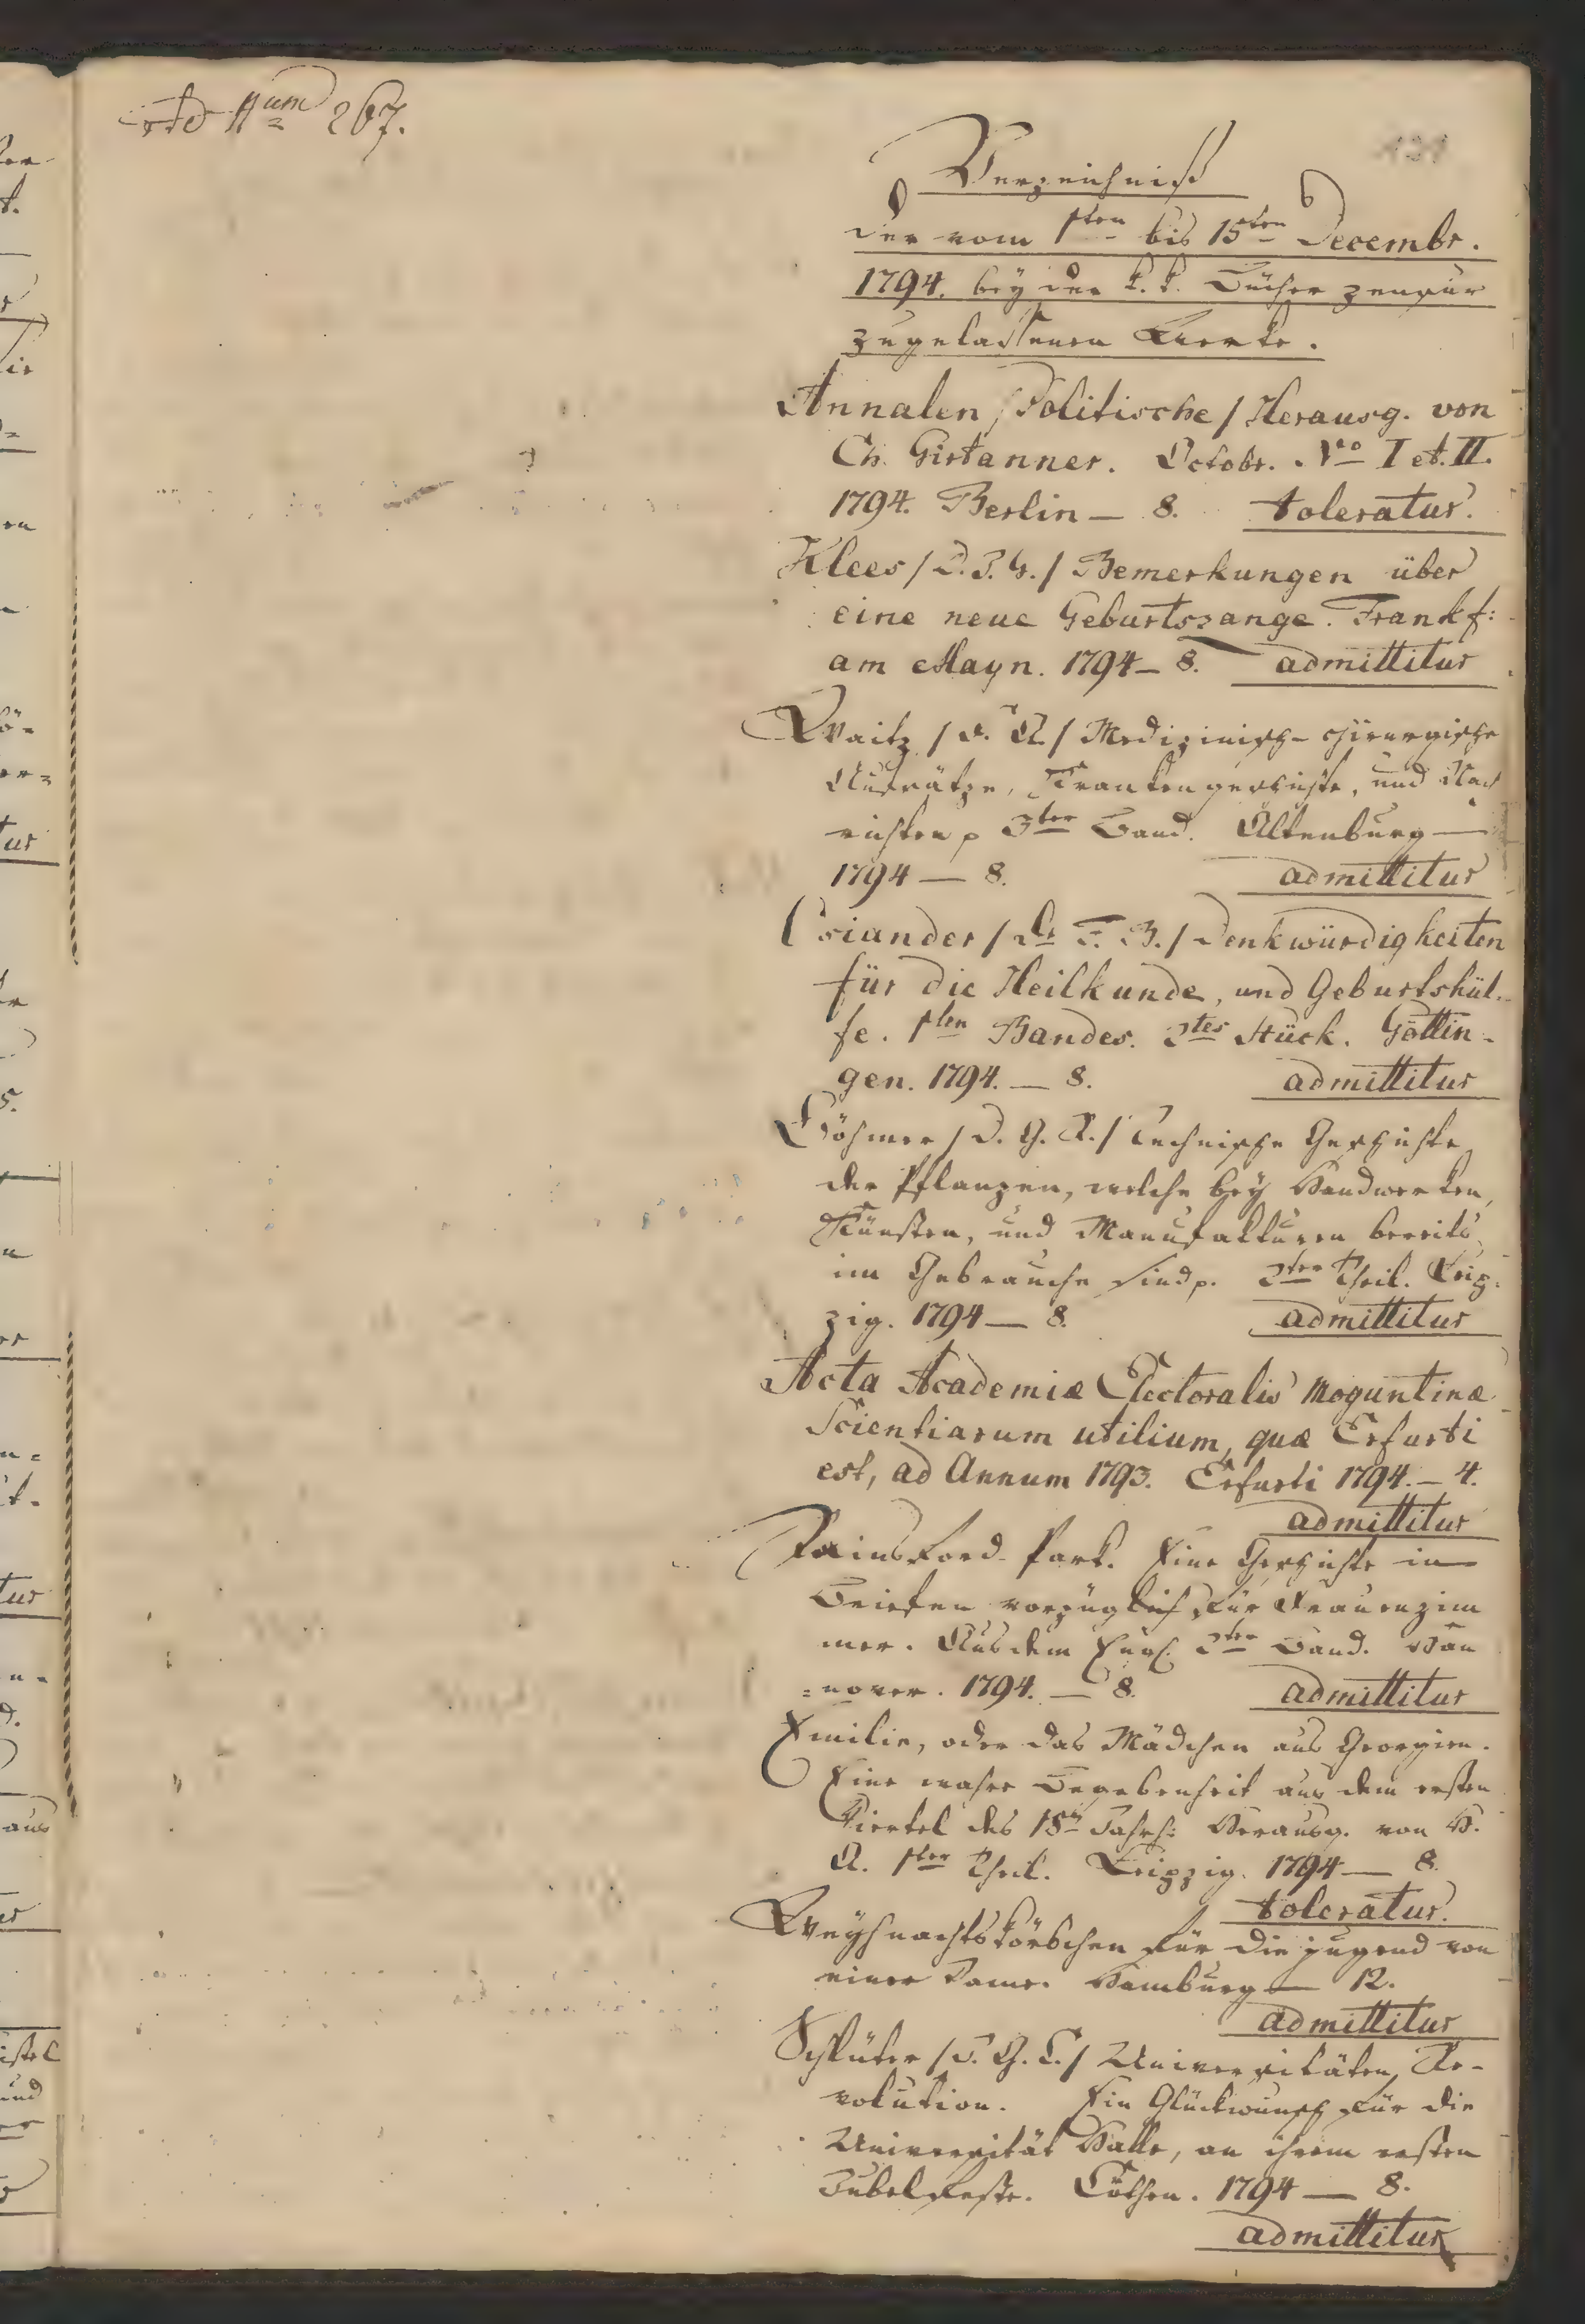 ad Num 267.
Verzeichniß
der vom 1ten bis 15ten Decembr.
1794. bey der k. k. Bücher zensur
zugelassenen Werke.
Annalen / Politische / Herausg. von
Ch. Girtanner. Octobr. No I et. II.
1794. Berlin — 8. toleratur.
Klees / D. I. G. / Bemerkungen über
eine neue Geburtszange. Frankf:
am Mayn. 1794 — 8. admittitur
Waitz / F. A. / Medizinisch-chirurgische
Aufsätze, Krankengeschichte, und Nach
richten p 3ter Band. Altenburg —
1794 — 8. admittitur
Osiander / Dr F. B. / Denkwürdigkeiten
für die Heilkunde, und Geburtshül-
fe. 1ten Bandes. 2tes Stück. Göttin-
gen. 1794. — 8. admittitur
Böhmer / D. G. R. / Technische Geschichte
der Pflanzen, welche bey Handwerken,
Künsten, und Manufakturen bereits
im Gebrauche sind p. 2ter Theil. Leip-
zig. 1794 — 8. admittitur
Acta Academiæ Electoralis Moguntinæ
Scientiarum utilium, quæ Erfurti
est, ad Annum 1793. Erfurti 1794. — 4.
admittitur
Rainsford-Park. Eine Geschichte in
Briefen vorzüglich für Frauenzim
mer. Aus dem Engl. 2ter Band. Han
=nover. 1794. — 8. admittitur
Emilie, oder das Mädchen aus Georgien.
Eine wahre Begebenheit aus dem ersten
Viertel des 18ten Jahrh: Herausg. von H.
A. 1ter Theil. Leipzig. 1794 — 8.
toleratur.
Weyhnachtskörbchen für die jugend von
einer Dame. Hamburg — 12.
admittitur
Schlüter / J. G. C. / Universitäten, Re-
volution. Ein Glückwunsch für die
Universität Halle, an ihrem ersten
Jubelfeste. Cöthen. 1794 — 8.
admittitur